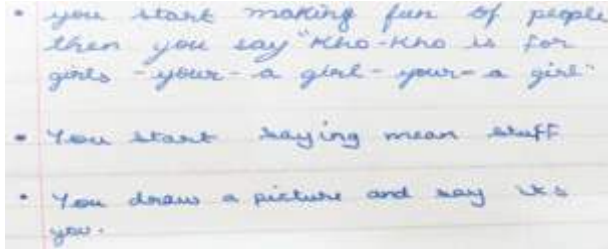 • you start making fun of people
then you say "Kho-Kho is for
girls - your - a girl - your - a girl"
• You start saying mean stuff
• You draw a picture and say its
you.